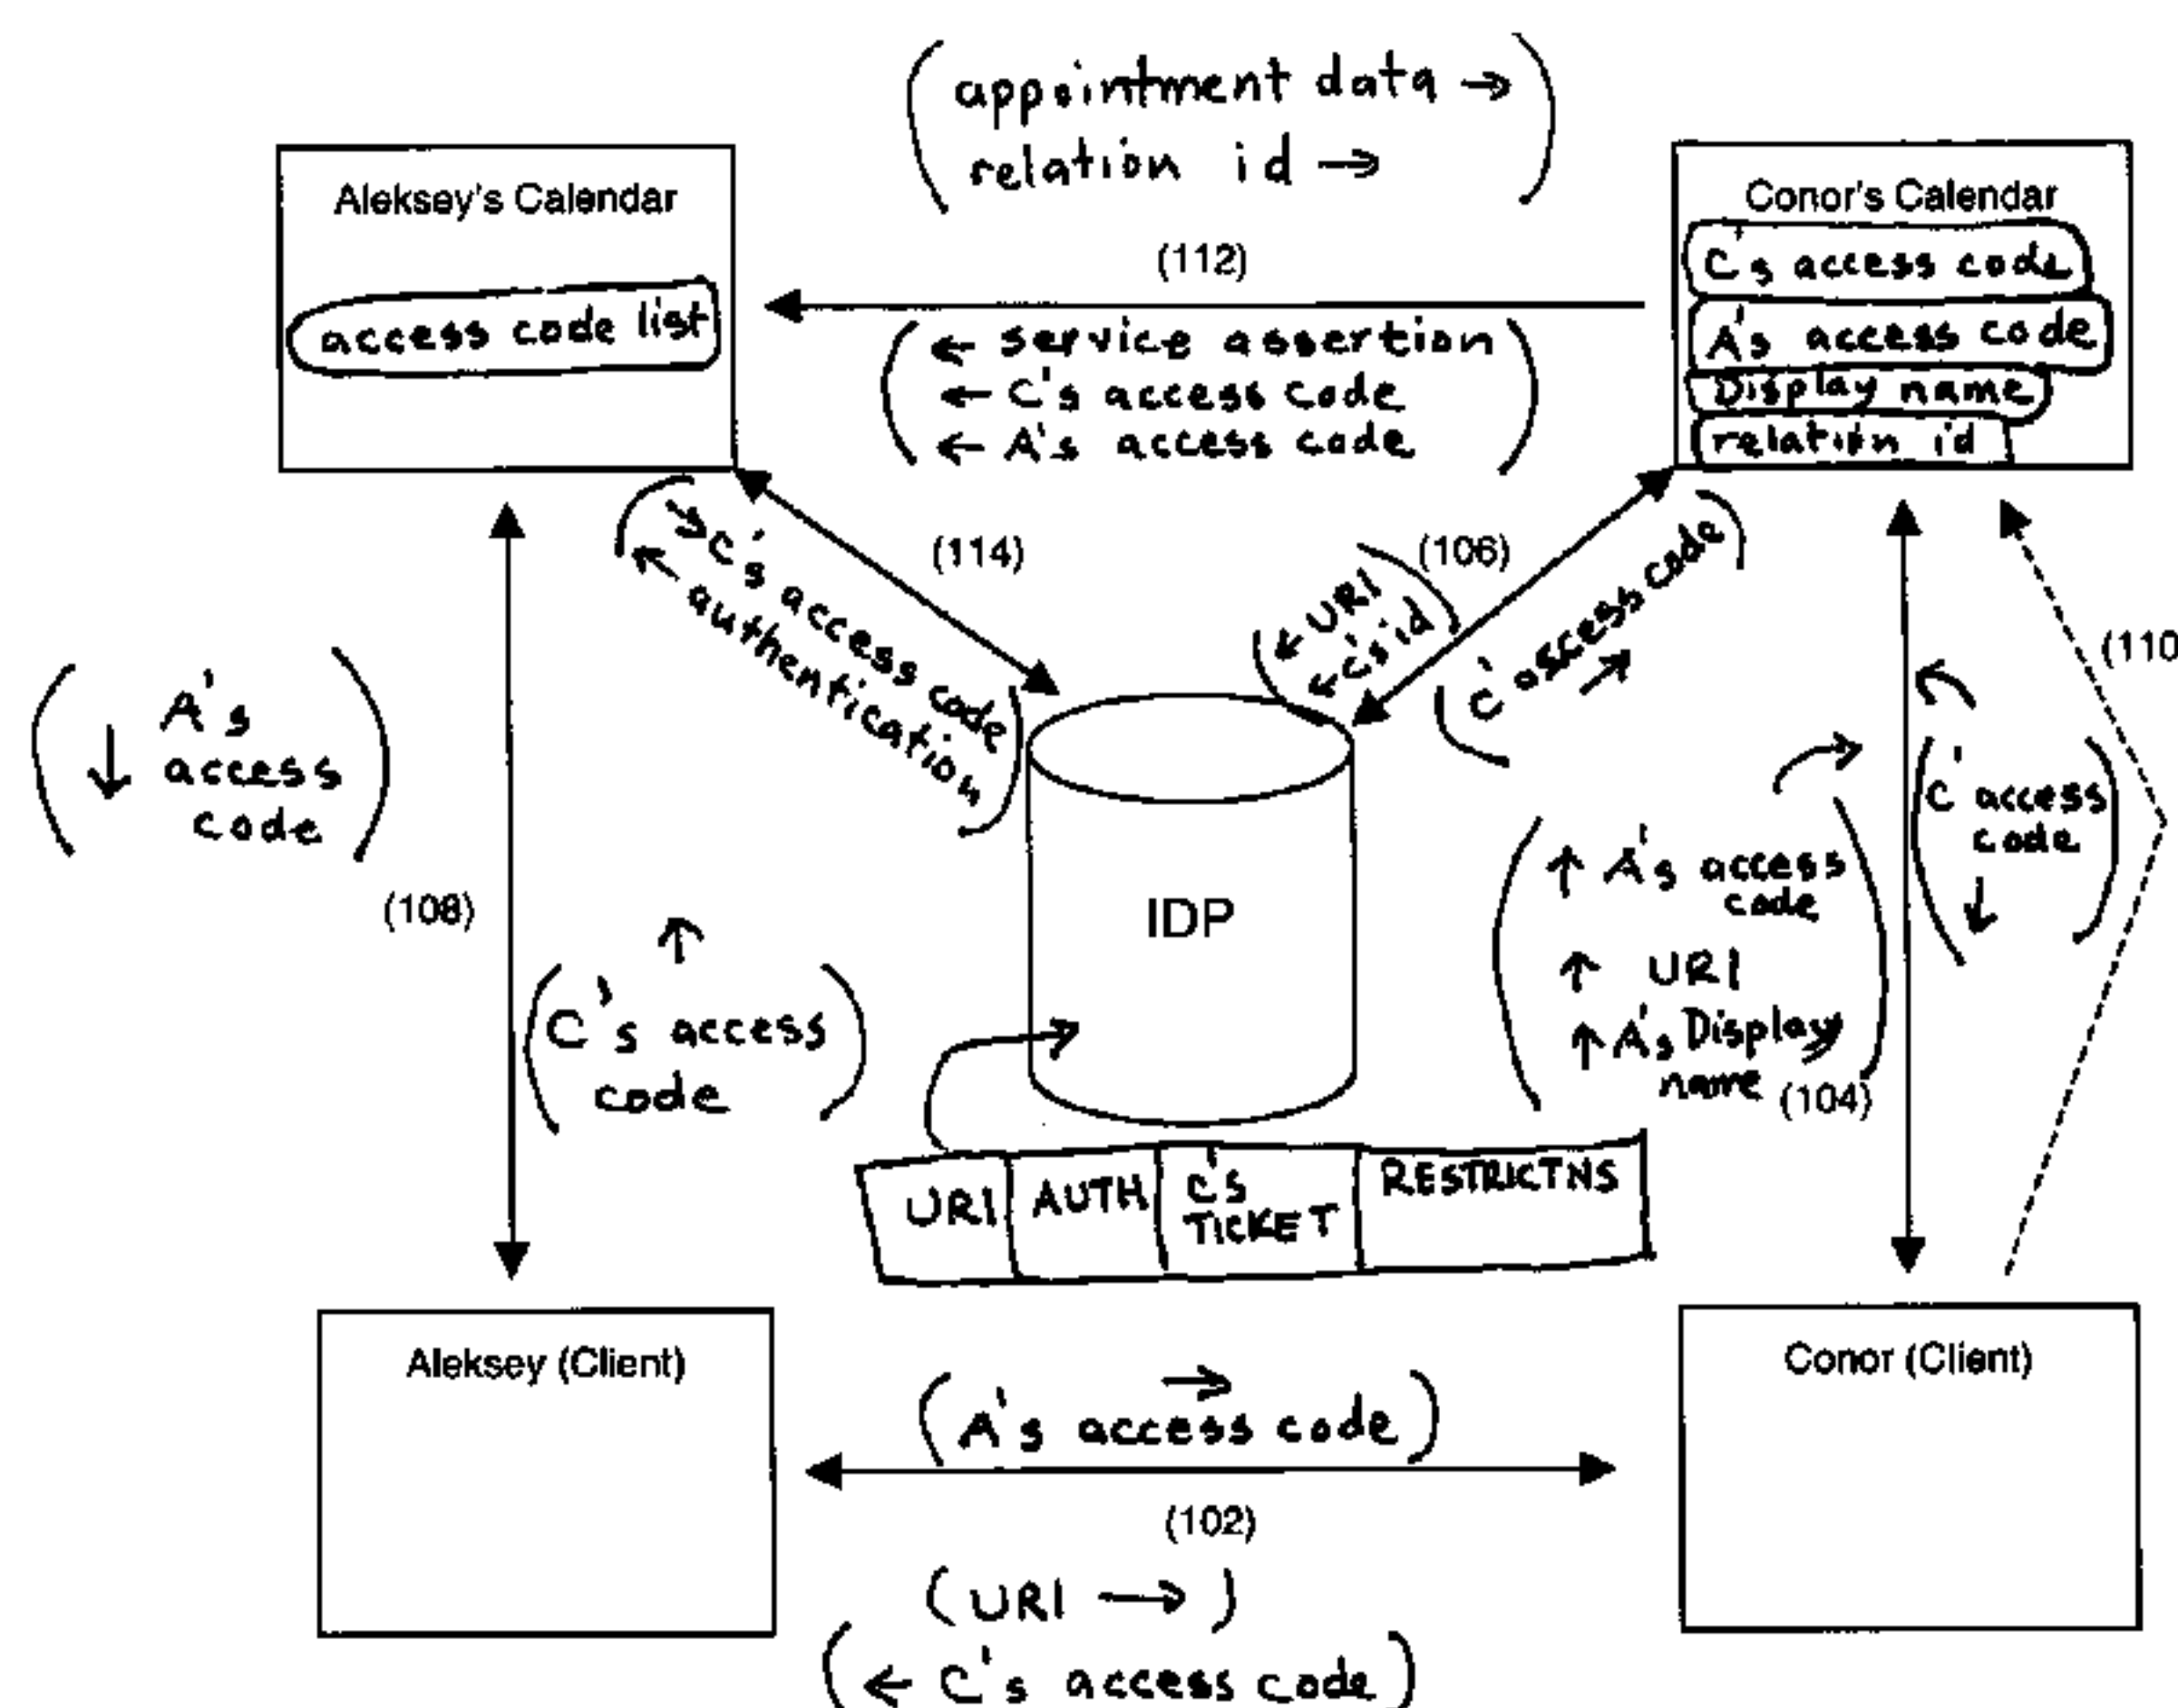 (appointment data →
relation id →)
Aleksey's Calendar
access code list
(112)
(← service assertion
← C's access code
← A's access code)
Conor's Calendar
C's access code
A's access code
Display name
relation id
(↘ C's access code
↖ authentication)
(114)
(↙ URI
↙ C's id)
(106)
(C' access code ↗)
(110
(↓ A's
access
code)
(108)
↑
(C's access
code)
IDP
(↑ A's access
code
↑ URI
↑ A's Display
name)
(104)
(C' access
code
↓)
URI
AUTH
C's
TICKET
RESTRICTNS
Aleksey (Client)
→
(A's access code)
(102)
(URI →)
(← C's access code)
Conor (Client)